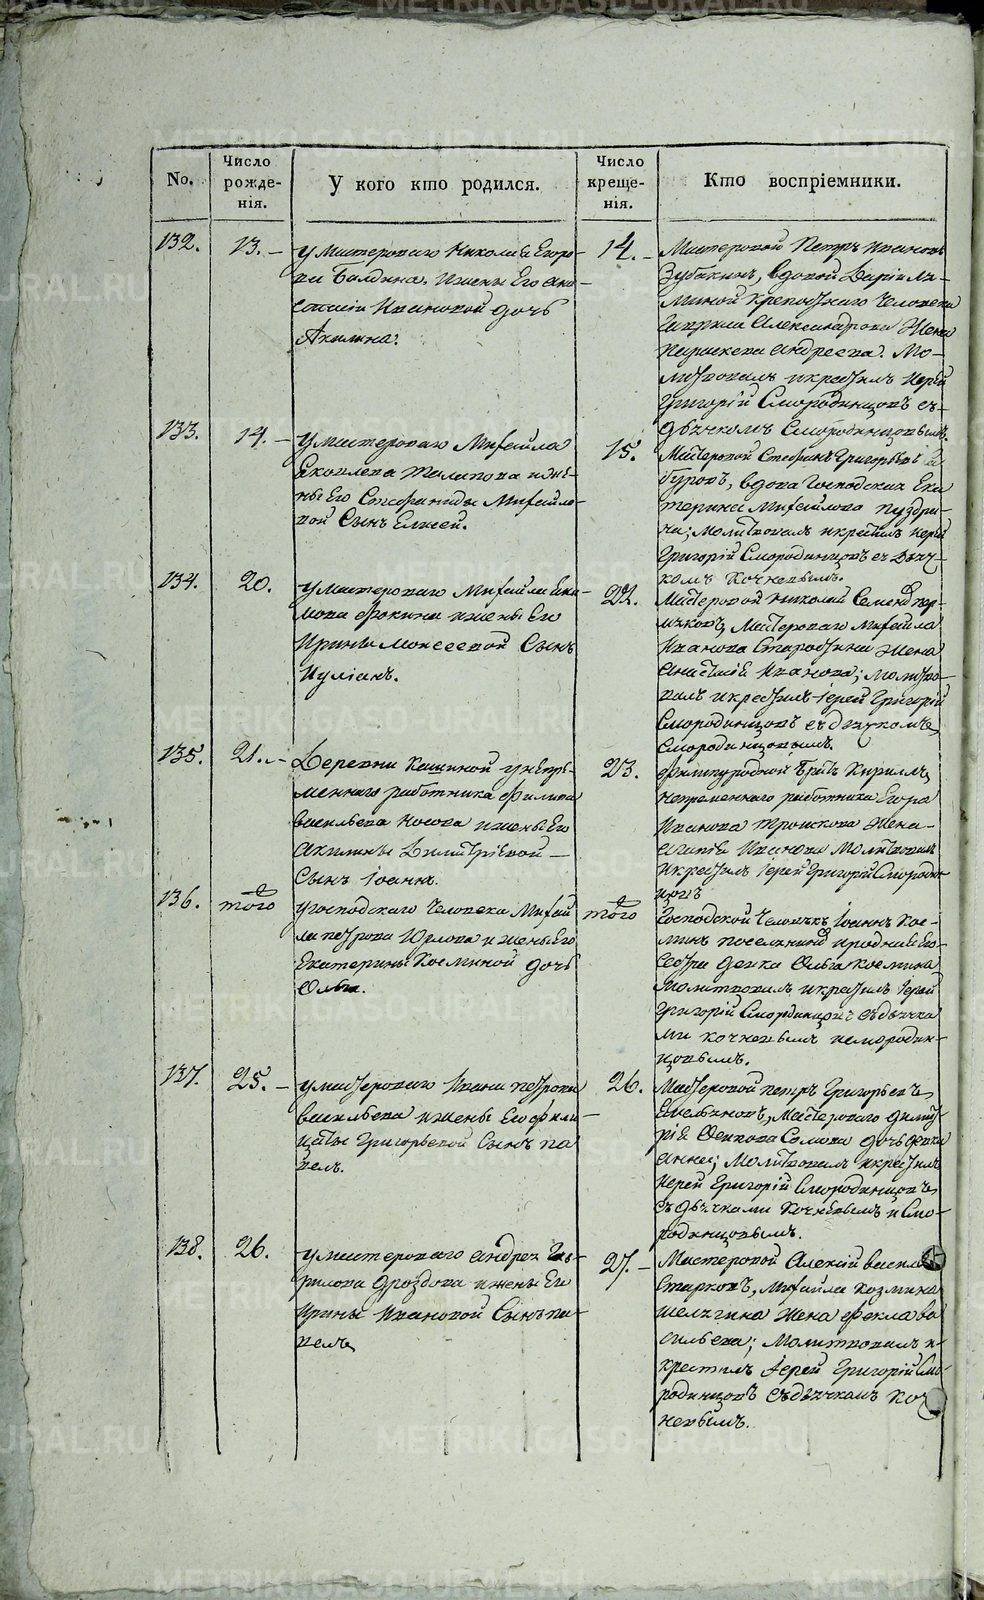 No.
Число рожде-нія.
У кого кто родился.
Число креще-нія.
Кто воспріемники.
132.
13.
У мастероваго Николая Егоро-
ва Балдина, и жены Его Ана-
стасіи Ивановой дочь
Акилина.
14.
Мастеровой Петръ Ивановъ
Зубакинъ, вдовой Даріи
крепостнаго человека
Гаврила Александрова жена
Параскева Андреева. Мо-
литвовалъ и крестилъ Іерей
Григорій Смородинцовъ съ
дьячкомъ Смородинцовымъ.
133.
14.
У мастероваго Михайла
Яковлева Талапова и же-
ны Его Стефаниды Михайло-
вой Сынъ Елисей.
15.
Мастеровой Стефанъ Григорьевъ
вдова Господская Ека-
терина Михайлова
молитвовалъ и крестилъ Іерей
Григорій Смородинцовъ съ дьяч-
комъ Кочневымъ.
134.
20.
У мастероваго Михайла Еки-
мова Фокина и жены Его
Ирины Моисеевой Сынъ
Иуліанъ.
22.
Мастеровой Николай Семеновъ
Мастероваго Михайла
Иванова Старостина жена
Анастасія Иванова; молитво-
валъ и крестилъ Іерей Григорій
Смородинцовъ съ дьячкомъ
Смородинцовымъ.
135.
21.
Деревни Кашиной у непре-
меннаго работника Филипа
Васильева Носова и жены Его
Акилины Димитріевой
Сынъ Іоаннъ.
23.
Филипу родной братъ Кириллъ,
непременнаго работника Егора
Иванова Трошкова жена
Агапія Иванова молитвовалъ
и крестилъ Іерей Григорій Смородин-
цовъ
136.
того
У господскаго человека Михай-
ла Петрова Юрлова и жены Его
Екатерины Косминой дочь
Ольга.
того
Господской человекъ Іоаннъ Кос-
минъ и родная Его
Сестра девка Ольга Космина
молитвовалъ и крестилъ Іерей
Григорій Смородинцовъ съ дьячка-
ми Кочневымъ и Смородин-
цовымъ.
137.
25.
У мастероваго Ивана Петрова
Васильева и жены Его Фили-
цаты Григорьевой Сынъ Па-
велъ.
26.
Мастеровой Петръ Григорьевъ
Емельяновъ, Мастероваго Димит-
рія Сомова дочь девка
Анна; молитвовалъ и крестилъ
Іерей Григорій Смородинцовъ
съ дьячками Кочневымъ и Смо-
родинцовымъ.
138.
26.
У мастероваго Андрея Гав-
рилова Дроздова и жены Его
Ирины Ивановой Сынъ Па-
велъ
27.
Мастеровой Алексій Василь
Старковъ, Михайла Козмина
Шелыгина жена Фекла Ва-
сильева; Молитвовалъ и
крестилъ Іерей Григорій Смо-
родинцовъ съ дьячкомъ Коч-
невымъ.
METRIKI.GASO-URAL.RU